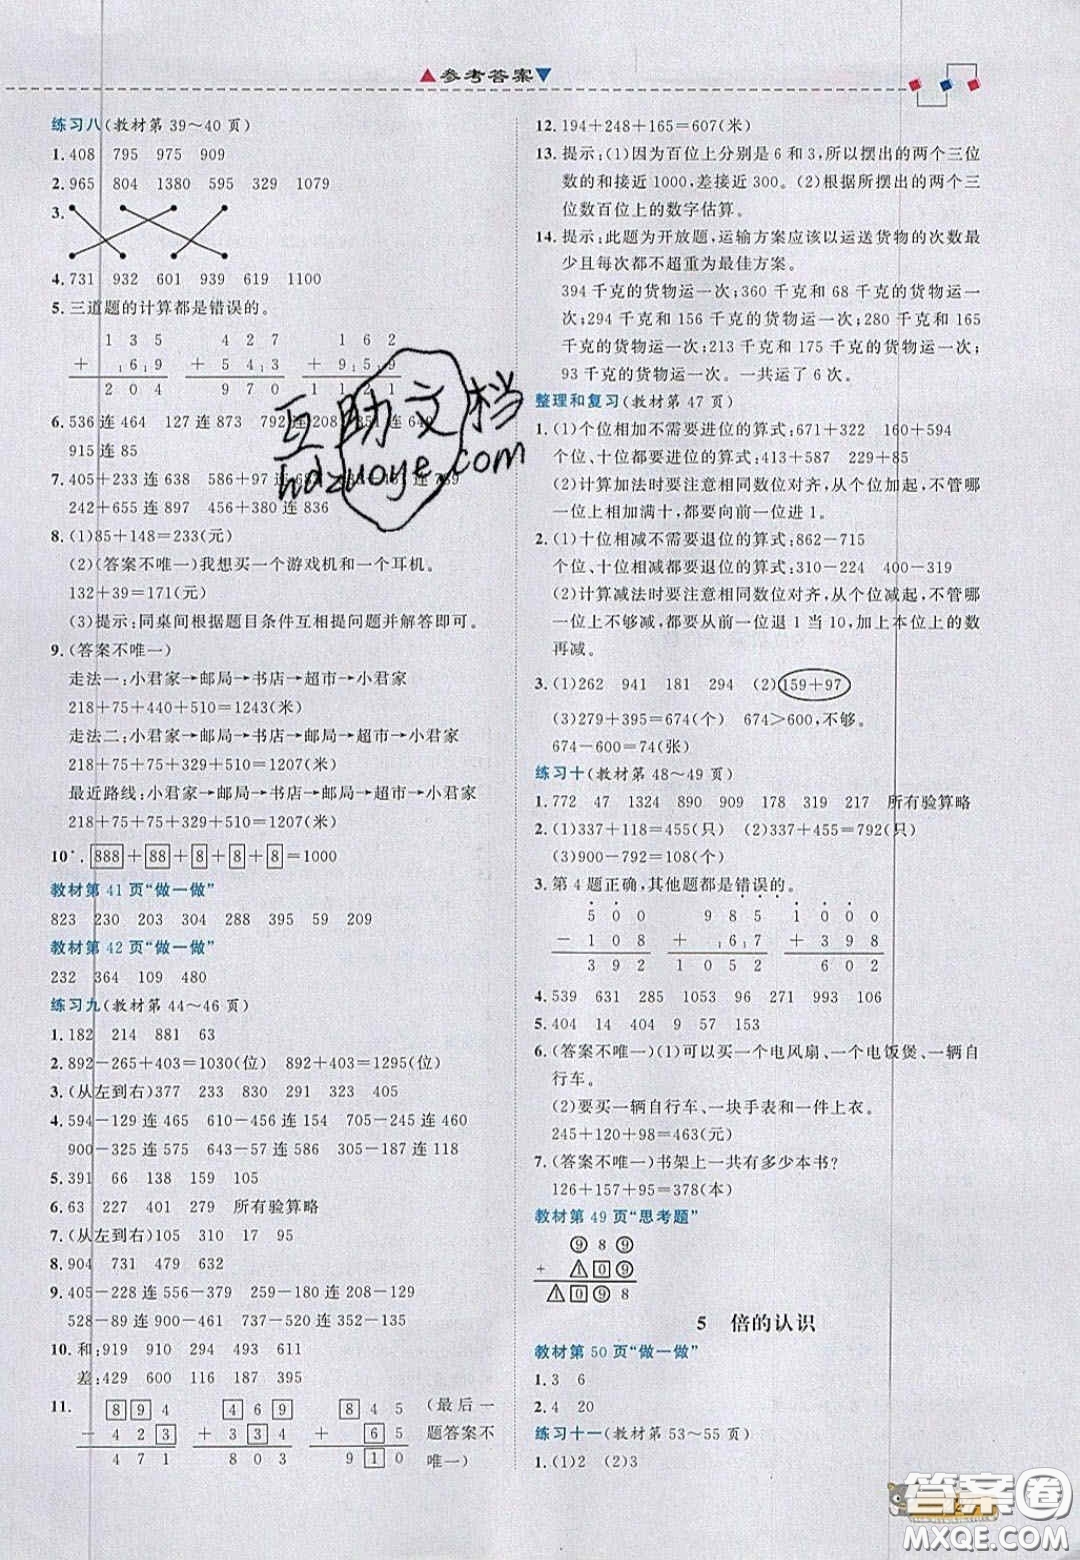 参考答案
练习八(教材第39～40页)
1.408 795 975 909
2.965 804 1380 595 329 1079
3.
4.731 932 601 939 619 1100
5.三道题的计算都是错误的。
1 3 5 4 2 7 1 6 2
+ 1 6 9 + 5 4 1 3 + 9 1 5 1 9
2 0 4 9 7 0 1 1 2 1
6.536连464 127连873 792连208
915连85
7.405+233连638 586+97连
242+655连897 456+380连836
8.(1)85+148=233(元)
(2)(答案不唯一)我想买一个游戏机和一个耳机。
132+39=171(元)
(3)提示:同桌间根据题目条件互相提问题并解答即可。
9.(答案不唯一)
走法一:小君家→邮局→书店→超市→小君家
218+75+440+510=1243(米)
走法二:小君家→邮局→书店→邮局→超市→小君家
218+75+75+329+510=1207(米)
最近路线:小君家→邮局→书店→邮局→超市→小君家
218+75+75+329+510=1207(米)
10*.888+88+8+8+8=1000
教材第41页“做一做”
823 230 203 304 288 395 59 209
教材第42页“做一做”
232 364 109 480
练习九(教材第44～46页)
1.182 214 881 63
2.892-265+403=1030(位) 892+403=1295(位)
3.(从左到右)377 233 830 291 323 405
4.594-129连465 610-456连154 705-245连460
900-325连575 643-57连586 305-187连118
5.391 66 138 159 158
6.63 227 401 279 所有验算略
7.(从左到右)105 310 17 95
8.904 731 479 652
9.405-228连556-379 259-180连208-129
528-89连900-461 602-250连487-135
10.和:919 910 294 493 881
差:429 660 116 187 395
11. 8 9 4 4 6 9 8 4 5 (最后一
- 4 2 3 + 3 3 4 + 6 5 题答案不
4 7 1 8 0 3 9 1 0 唯一)
12.194+248+165=607(米)
13.提示:(1)因为百位上分别是6和3,所以摆出的两个三位
数的和接近1000,差接近300。(2)根据所摆出的两个三
位数百位上的数字估算。
14.提示:此题为开放题,运输方案应该以运送货物的次数最
少且每次都不超重为最佳方案。
394千克的货物运一次;360千克和68千克的货物运一
次;294千克和156千克的货物运一次;280千克和165
千克的货物运一次;213千克和175千克的货物运一次;
93千克的货物运一次。一共运了6次。
整理和复习(教材第47页)
1.(1)个位相加不需要进位的算式:671+322 160+594
个位、十位都要进位的算式:413+587 229+85
(2)计算加法时要注意相同数位对齐,从个位加起,不管哪
一位上相加满十,都要向前一位进1。
2.(1)十位相减不需要退位的算式:862-715
个位、十位相减都要退位的算式:310-224 400-319
(2)计算减法时要注意相同数位对齐,从个位减起,不管哪
一位上不够减,都要从前一位退1当10,加上本位上的数
再减。
3.(1)262 941 181 294 (2)159+97
(3)279+395=674(个) 674>600,不够。
674-600=74(张)
练习十(教材第48～49页)
1.772 47 1324 890 909 178 319 217 所有验算略
2.(1)337+118=455(只) (2)337+455=792(只)
(3)900-792=108(只)
3.第4题正确,其他题都是错误的。
5 0 0 9 8 5 1 0 0 0
- 1 0 8 + 1 6 1 7 - 2 3 6
3 9 2 1 0 5 2 7 6 4
4.539 631 285 1053 96 271 993 106
5.404 14 404 9 57 153
6.(答案不唯一)(1)可以买一个电风扇、一个电饭煲、一辆自
行车。
(2)要买一辆自行车、一块手表和一件上衣。
245+120+98=463(元)
7.(答案不唯一)书架上一共有多少本书?
126+157+95=378(本)
教材第49页“思考题”
9 8 9
+ 1 0 9
1 0 9 8
5 倍的认识
教材第50页“做一做”
1.3 6
2.4 20
练习十一(教材第53～55页)
1.(1)2 (2)3
互助文档
hdzuoye.com
答案圈
MXQE.COM